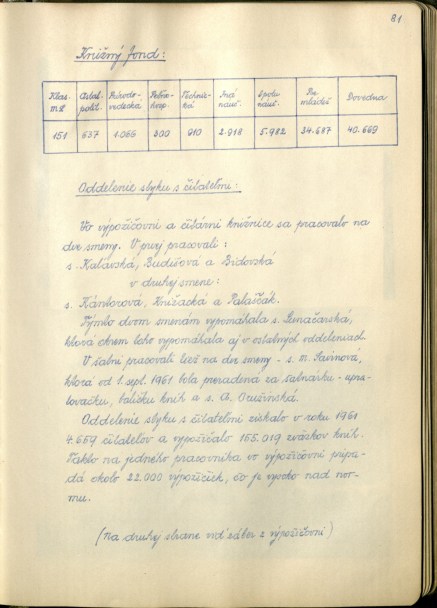 81
Knižný fond:
Klas. m-l. Ostat. polit. Prírodo-vedecká Poľno-hosp. Technic-ká Iná nauč. Spolu nauč. Pre mládež Dovedna
151 637 1.066 200 910 2.918 5.982 34.687 40.669
Oddelenie styku s čitateľmi:
Vo výpožičovni a čitárni knižnice sa pracovalo na
dve smeny. V prvej pracovali:
s. Kalavská, Budišová a Bidovská
v druhej smene:
s. Kántorová, Križacká a Palaščák.
Týmto dvom smenám vypomáhala s. Lunačarská,
ktorá okrem toho vypomáhala aj v ostatných oddeleniach.
V šatni pracovali tiež na dve smeny - s. M. Gavinová,
ktorá od 1. sept. 1961 bola preradená za šatnárku - upra-
tovačku, baličku kníh a s. A. Oružinská.
Oddelenie styku s čitateľmi získalo v roku 1961
7.659 čitateľov a vypožičalo 155.019 zväzkov kníh.
Takto na jedného pracovníka vo výpožičovni pripa-
dá okolo 22.000 výpožičiek, čo je vysoko nad nor-
mu.
(Na druhej strane viď záber z výpožičovni)